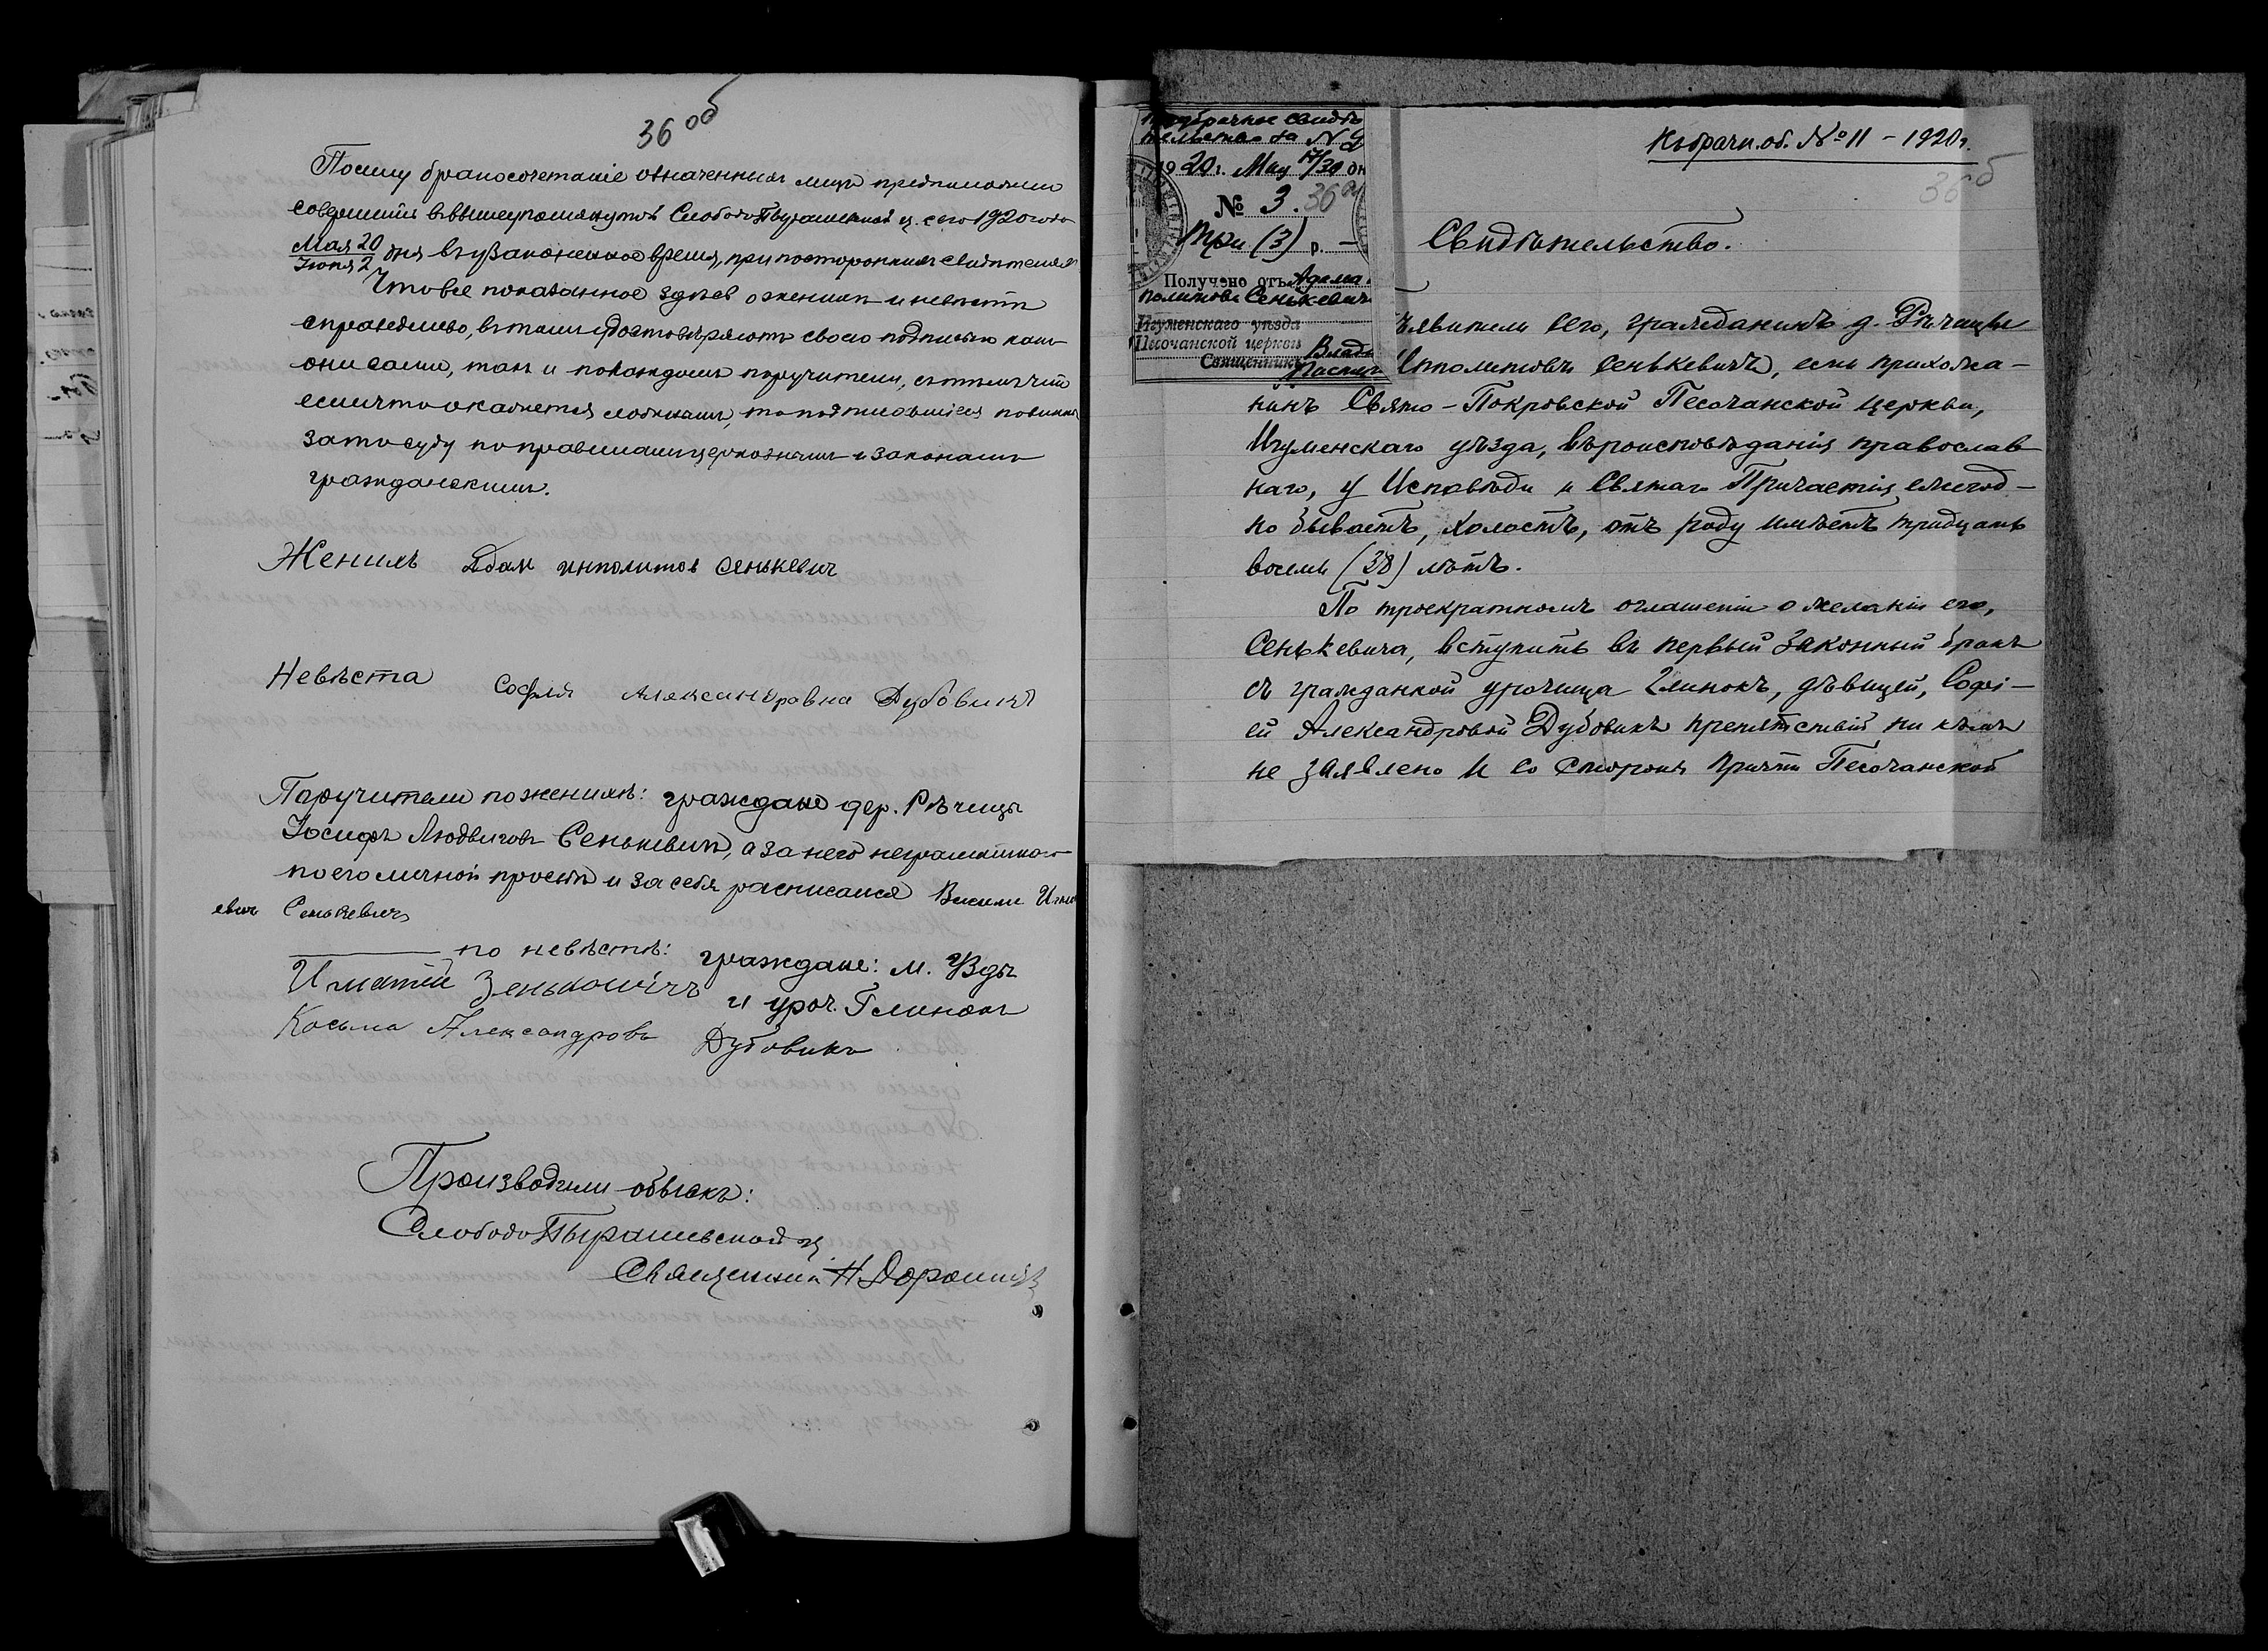 36 об
Посему бракосочетаніе означенныхъ лицъ предположено
совершить въ вышеупомянутой СлободоПырашевской ц. сего 1920 года
Мая 20
Іюня 2 дня въ узаконенное время, при постороннихъ свидѣтеляхъ
Что все показанное здѣсь о женихѣ и невѣстѣ
справедливо, въ томъ удостовѣряютъ своею подписью какъ
они сами, такъ и по каждомъ поручители, съ тѣмъ что
если что окажется ложнымъ, то подписавшіеся повинны
за то суду по правиламъ церковнымъ и законамъ
гражданскимъ.
Женихъ Адам ипполитов Сенькевич
Невѣста Софія Александровна Дубовикъ
Поручители по женихѣ: граждане дер. Рѣчицы
Іосифъ Людвиговъ Сенькевичъ, а за него неграмотнаго
по его личной просьбѣ и за себя расписался
евичъ Сенькевичъ
по невѣстѣ: граждане: м. Узды
Игнатій Зеньковичъ и уроч. Глинокъ
Косьма Александровъ Дубовикъ
Производили обыскъ:
СлободоПырашевской ц.
Священникъ Н.
Предбрачное свидѣ
тельство за №
1920 г. Мая 17/30 дн
№ 3. 36
Три (3) р. —
Получено отъ Адама
Сенькевича
Игуменскаго уѣзда
Песочанской церкви
Священникъ Влад
Къ брачн. об. № 11 – 1920 г.
36 б
Свидѣтельство.
ъявитель сего, гражданинъ д. Рѣчицы
Ипполитовъ Сенькевичъ, есть прихожа-
нинъ Свято-Покровской Песочанской церкви,
Игуменскаго уѣзда, вѣроисповѣданія православ
наго, у Исповѣди и Святаго Причастія ежегод-
но бываетъ, холостъ, отъ роду имѣетъ тридцать
восемь (38) лѣтъ.
По троекратномъ оглашеніи о желаніи его,
Сенькевича, вступить въ первый законный бракъ
съ гражданкой урочища Глинокъ, дѣвицей, Софі-
ей Александровой Дубовикъ препятствій ни кѣмъ
не заявлено и со стороны причта Песочанской